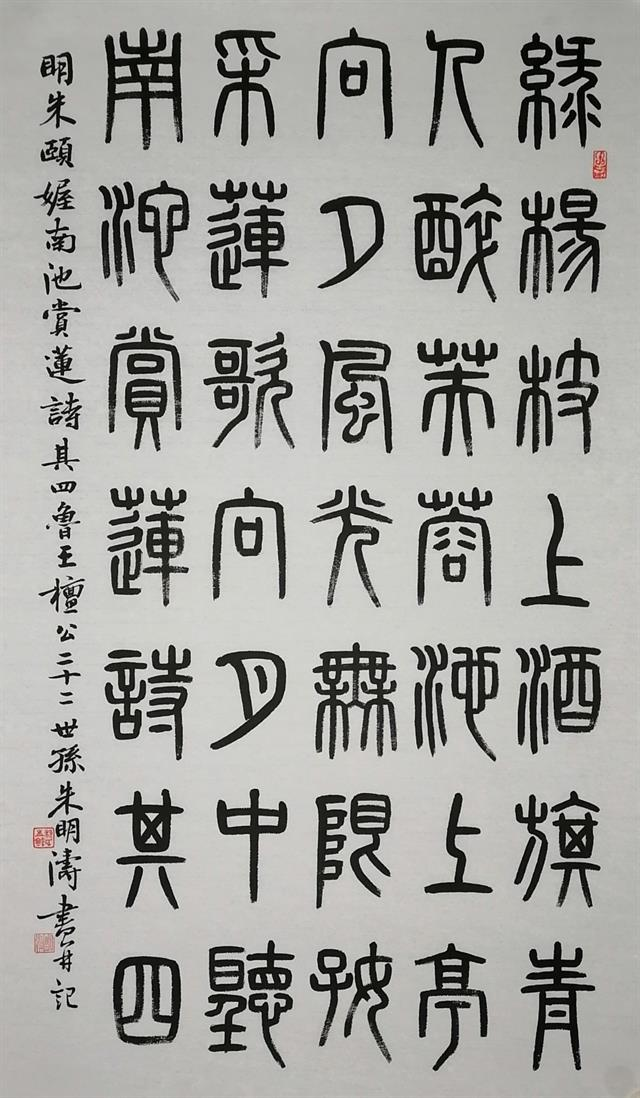 綠楊枝上酒旗青
人醉芙蓉池上亭
向夕風光無限好
采蓮歌向月中聽
南池賞蓮詩其四
明朱頤媉南池賞蓮詩其四魯王檀公二十二世孫朱明濤書并記